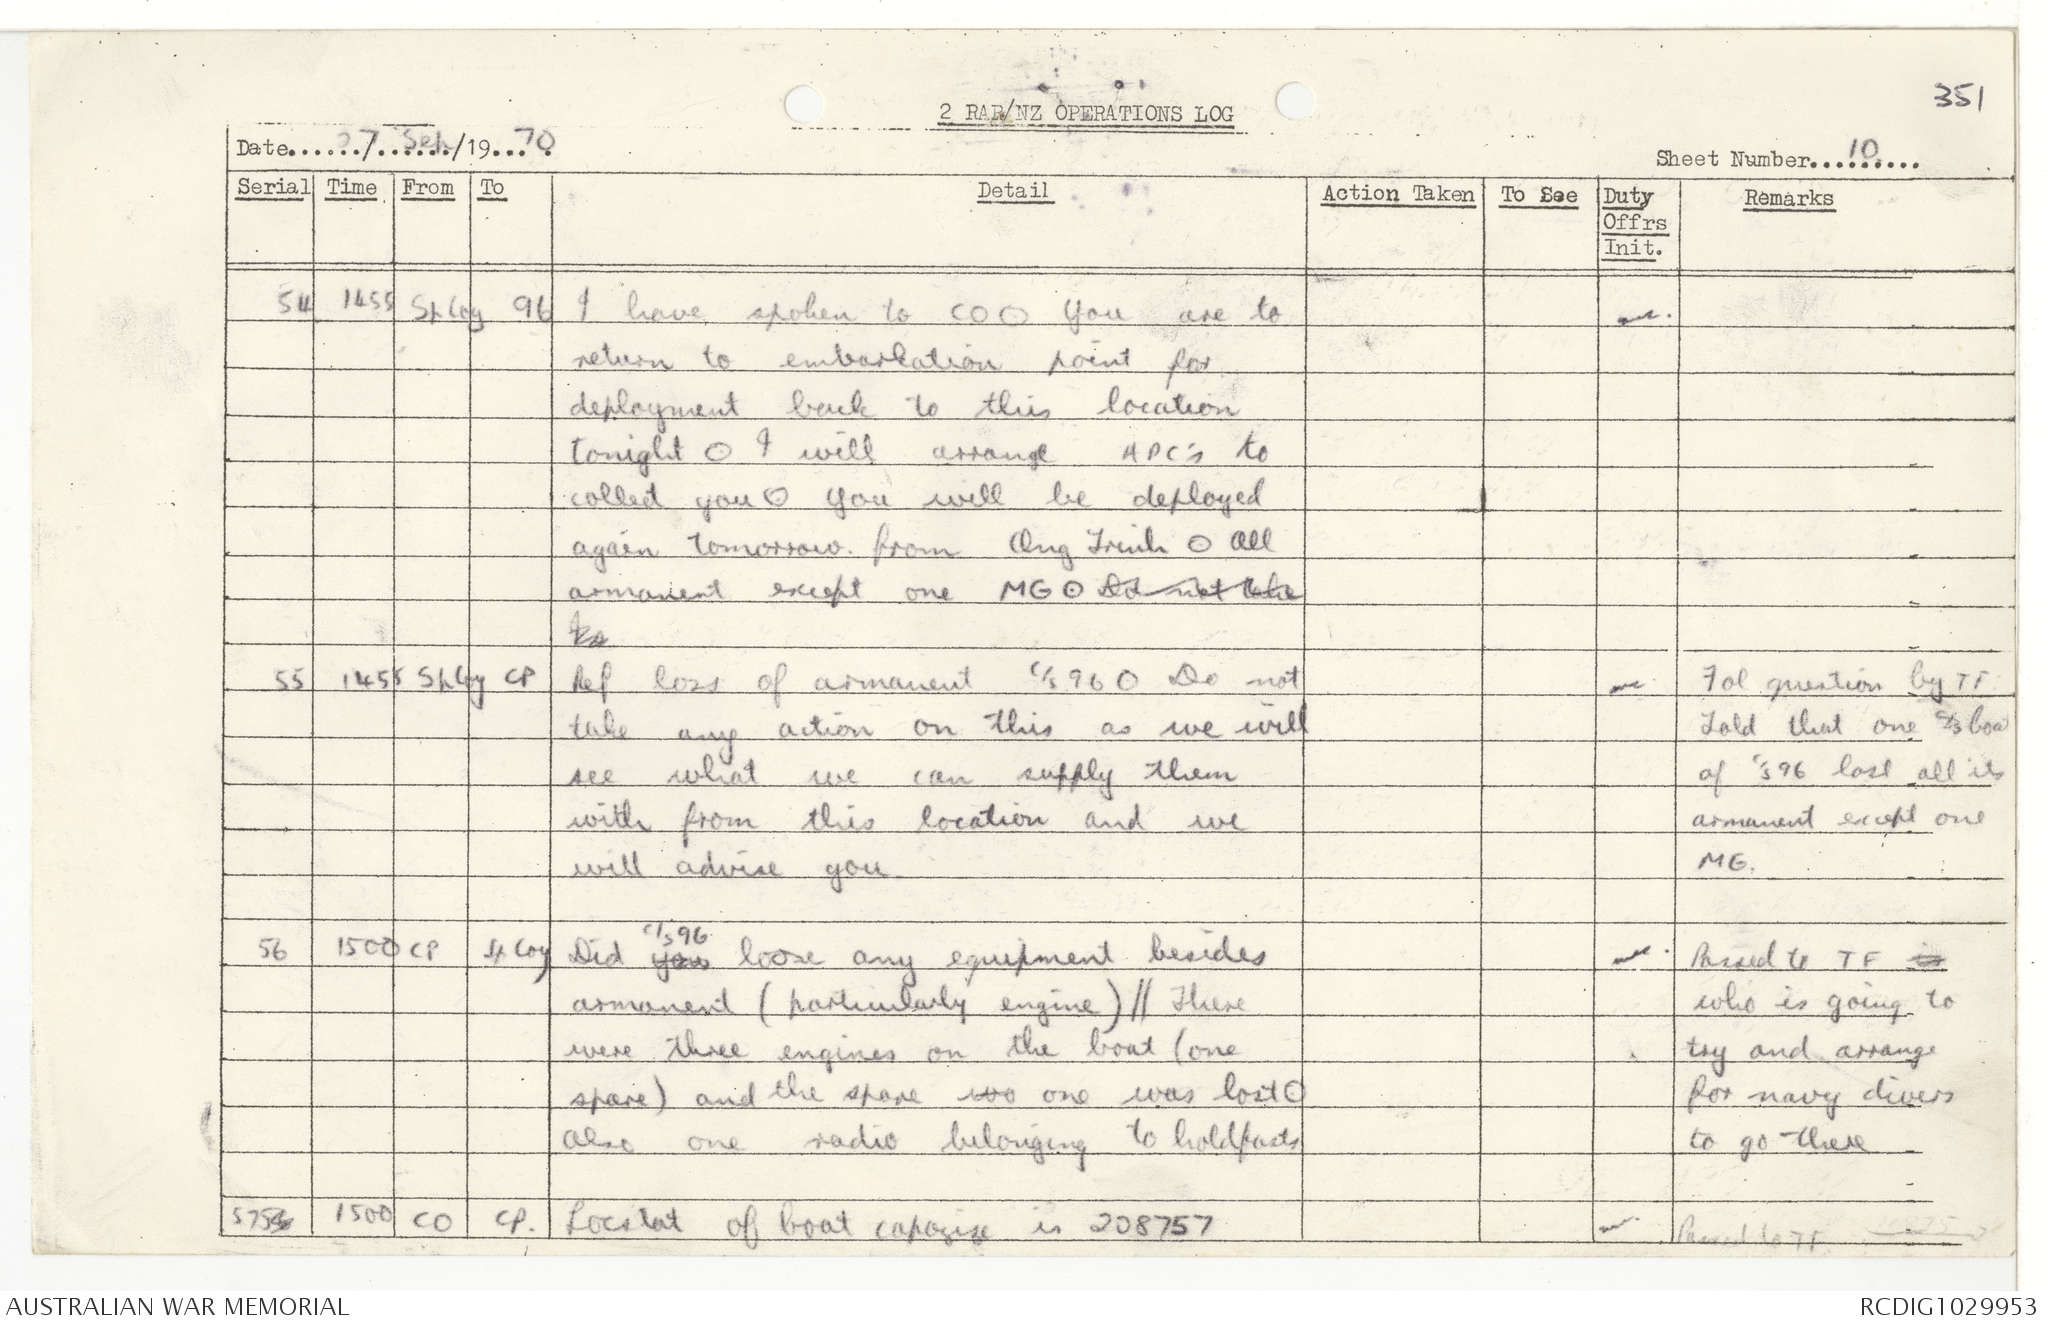 351
2 RAR/NZ OPERATIONS LOG
Date......07/...Sep.../19...70
Sheet Number...10......
Serial Time From To Detail Action Taken To See Duty Offrs Init. Remarks
54 1455 Sp Coy 96 I have spoken to CO O You are to
return to embarkation point for
deployment back to this location
tonight O I will arrange APC's to
collect you O You will be deployed
again tomorrow from Ong Trinh O All
armament except one MG O Do not take
55 1455 Sp Coy CP Ref loss of armanent c/s 96 O Do not Fol question by TF
take any action on this as we will Told that one c/s boat
see what we can supply them of c/s 96 lost all its
with from this location and we armanent except one
will advise you MG.
56 1500 CP Sp Coy Did you c/s 96 loose any equipment besides Passed to TF is
armanent (particularly engine) // There who is going to
were three engines on the boat (one try and arrange
spare) and the spare one was lost O for navy divers
also one radio belonging to holdfasts to go there
57 1500 CO CP. Locstat of boat capazise is 208757 Passed to TF
AUSTRALIAN WAR MEMORIAL RCDIG1029953